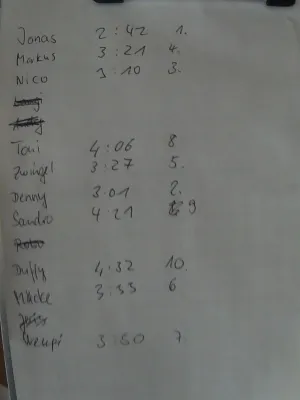 Jonas 2:42 1.
Markus 3:21 4.
Nico 3:10 3.
Toni 4:06 8
Zwingel 3:27 5.
Denny 3:01 2.
Sandro 4:21 9
Robo
Duffy 4:32 10.
Mücke 3:33 6
3:50 7.